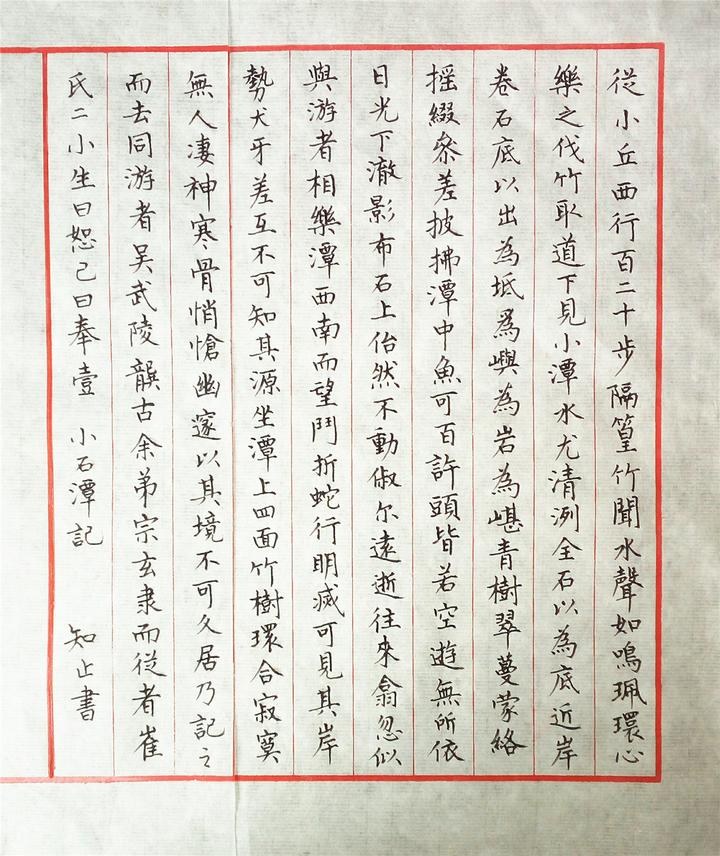 從小丘西行百二十步隔篁竹聞水聲如鳴珮環心
樂之伐竹取道下見小潭水尤清洌全石以為底近岸
卷石底以出為坻爲嶼為岩為嵁青樹翠蔓蒙絡
摇綴叅差披拂潭中魚可百許頭皆若空遊無所依
日光下澈影布石上佁然不動俶尔遠逝往來翕忽似
與游者相樂潭西南而望鬥折蛇行明滅可見其岸
勢犬牙差互不可知其源坐潭上四面竹樹環合寂寞
無人凄神寒骨悄愴幽邃以其境不可久居乃記之
而去同游者吴武陵龔古余弟宗玄隶而從者崔
氏二小生曰恕己曰奉壹 小石潭記 知止書